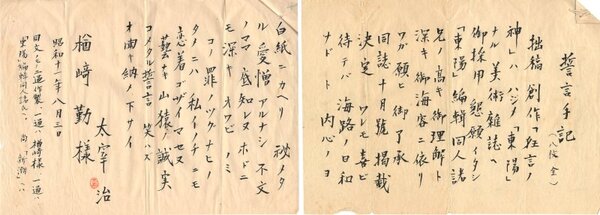 誓言手記
(八枚 全)
拙稿 創作「狂言ノ
神」ハ ハジメ「東陽」
ナル美術雜誌ヘ
御採用 懇願イタシ
「東陽」編輯同人諸
兄ノ高キ御理解ト
深キ御海容ニ依リ
ワガ願ヒ御了承
同誌十月號掲載
決定 ワレモ喜ビ
待テバ海路ノ日和
ナドト 内心ノヨ
白紙ニカヘリ 祕メタ
ル愛憎アルナシ 不文
ノママ 知レヌホドニ
深キオワビノミ
コノ罪ツグナヒノ
タメニハ 私イノチニモ
恋着ゴザイマセヌ
藝ナキ山猿 誠実
コメタル誓言 笑ハズ
納メ下サイ
昭和十一年八月三日
太宰 治
楢崎 勤 様
同文ノモノ二通作製、一通ハ楢崎様 一通ハ
東陽編輯同人諸兄ヘ、尚「新潮」ハ